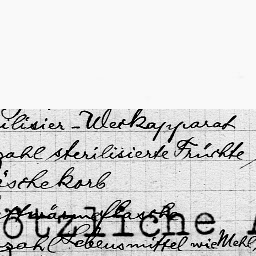 ilisier-Weckapparat
zahl sterilisierte Früchte,
äschekorb
ötzliche A
zahl Lebensmittel wie Mehl,